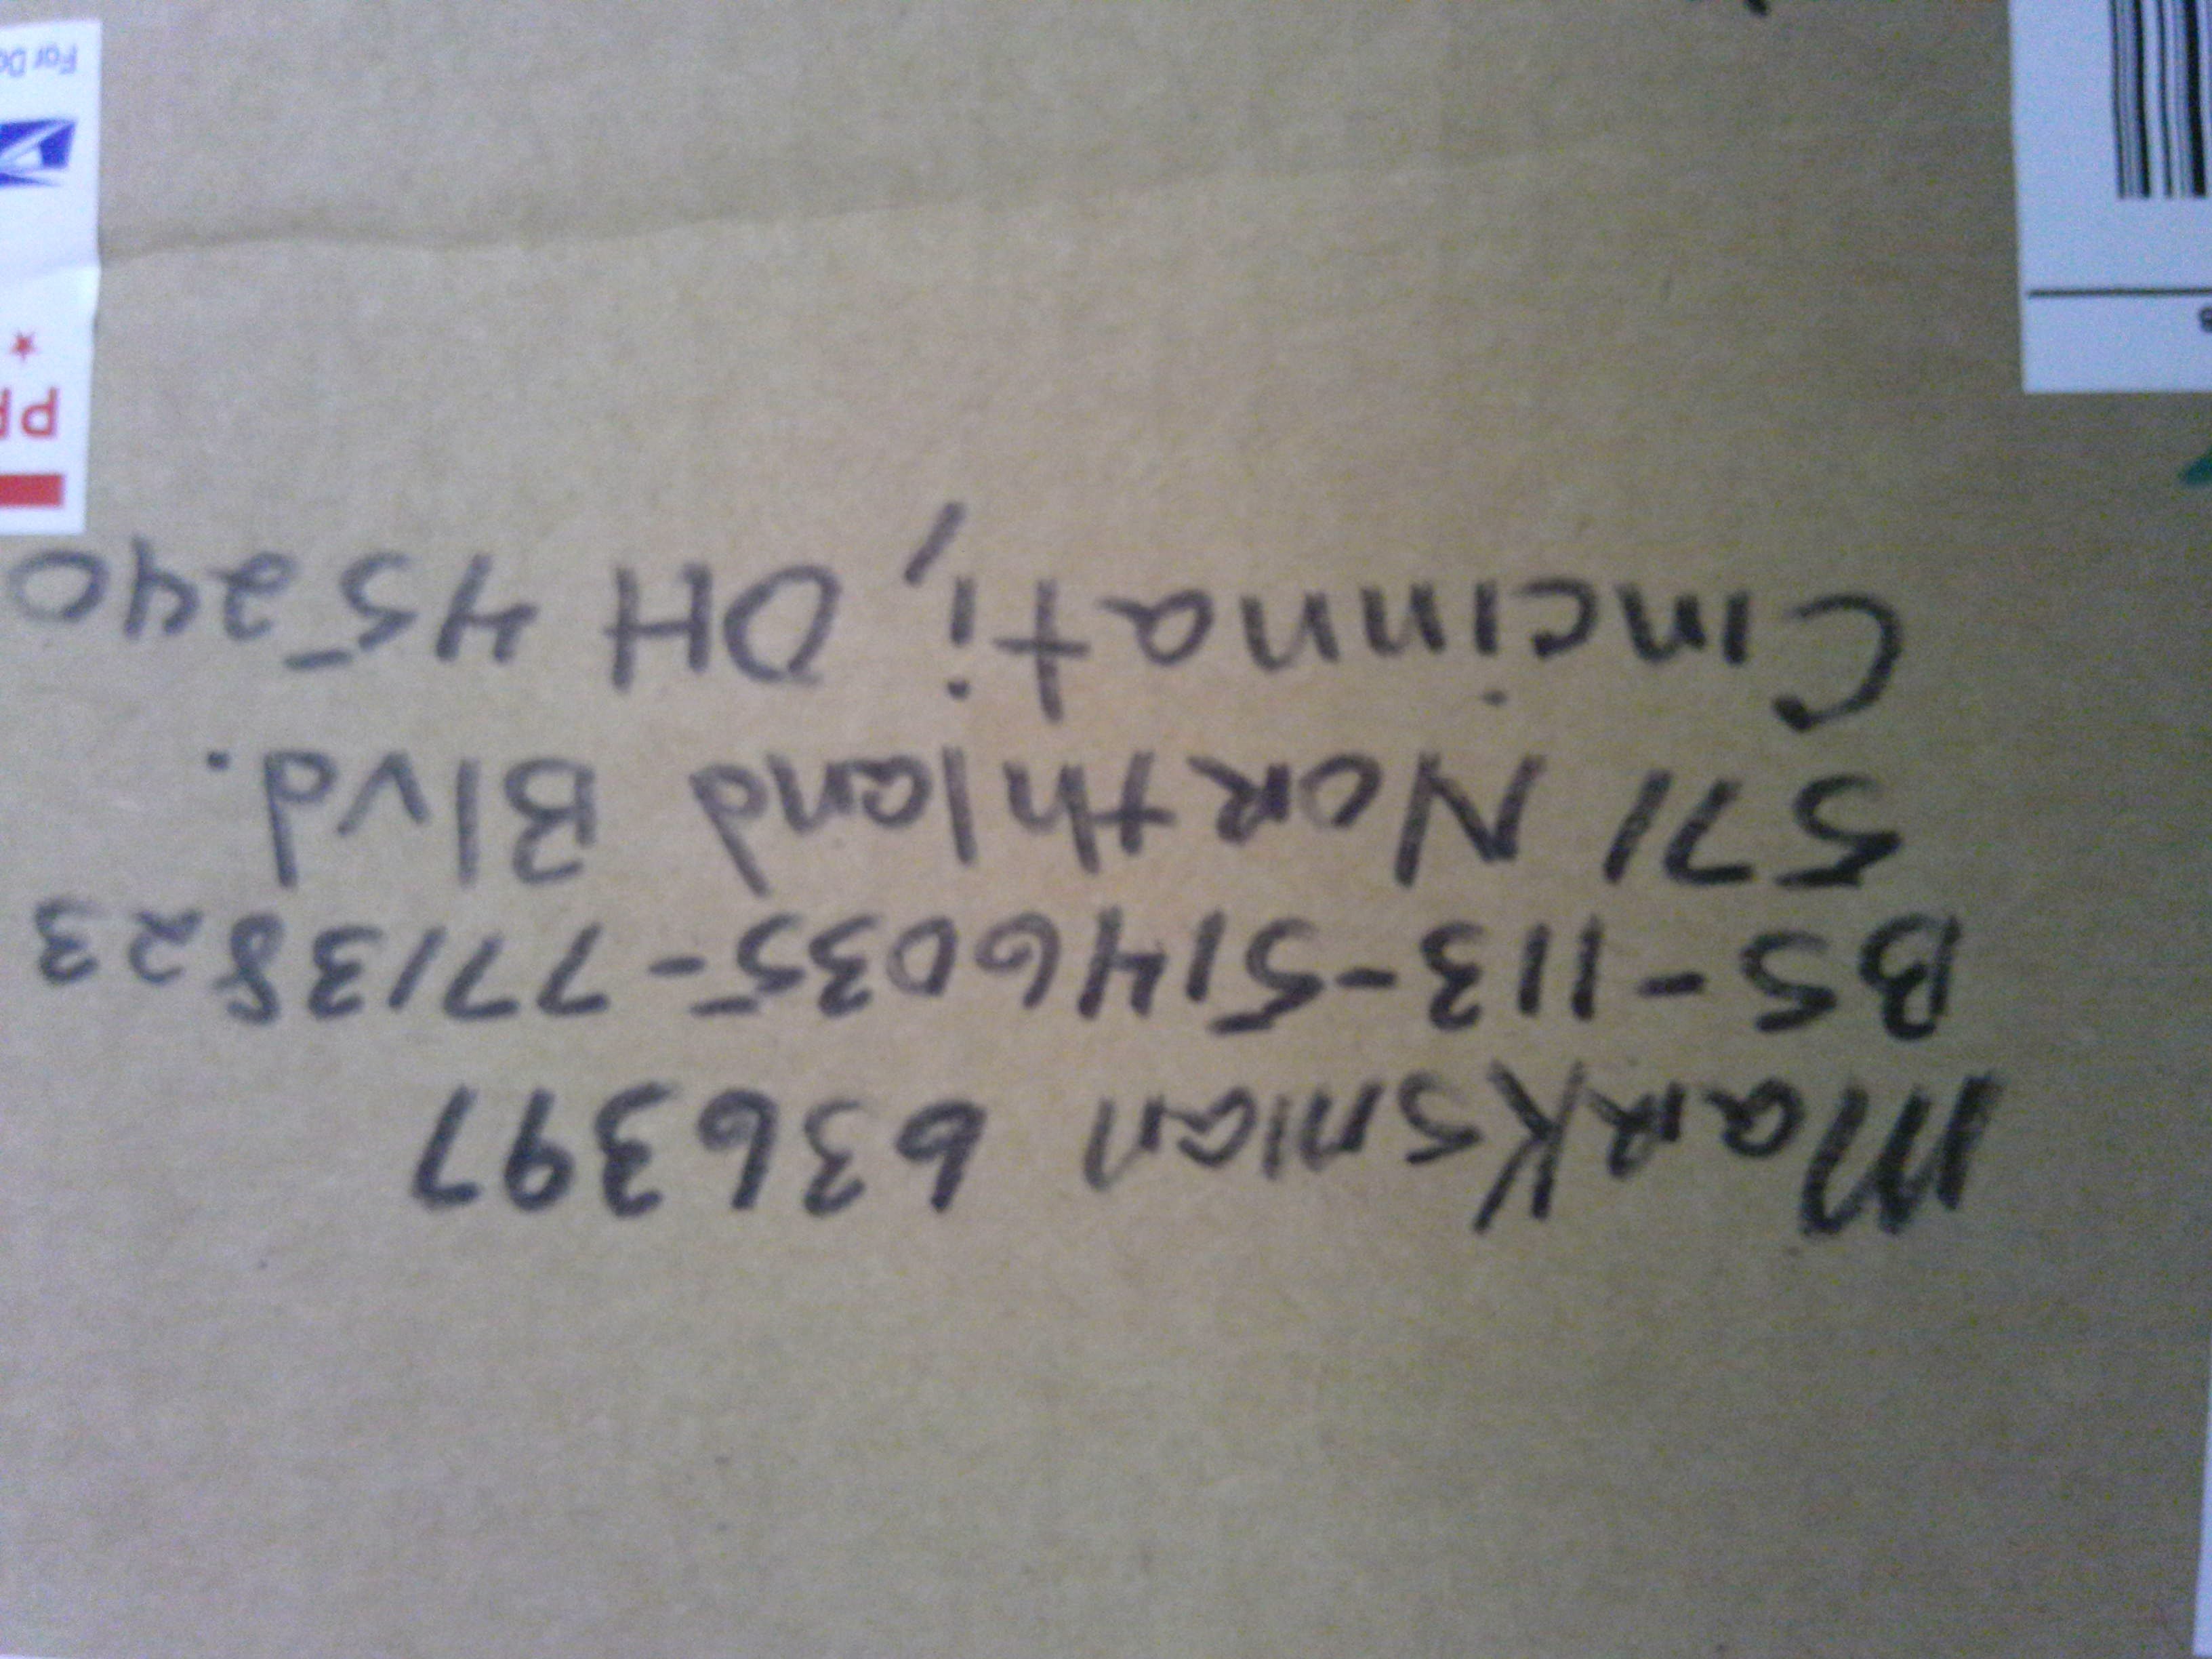 Marksman 636397
BS-113-5146035-7713823
571 Northland Blvd.
Cincinnati, OH 45240
PR
For Do